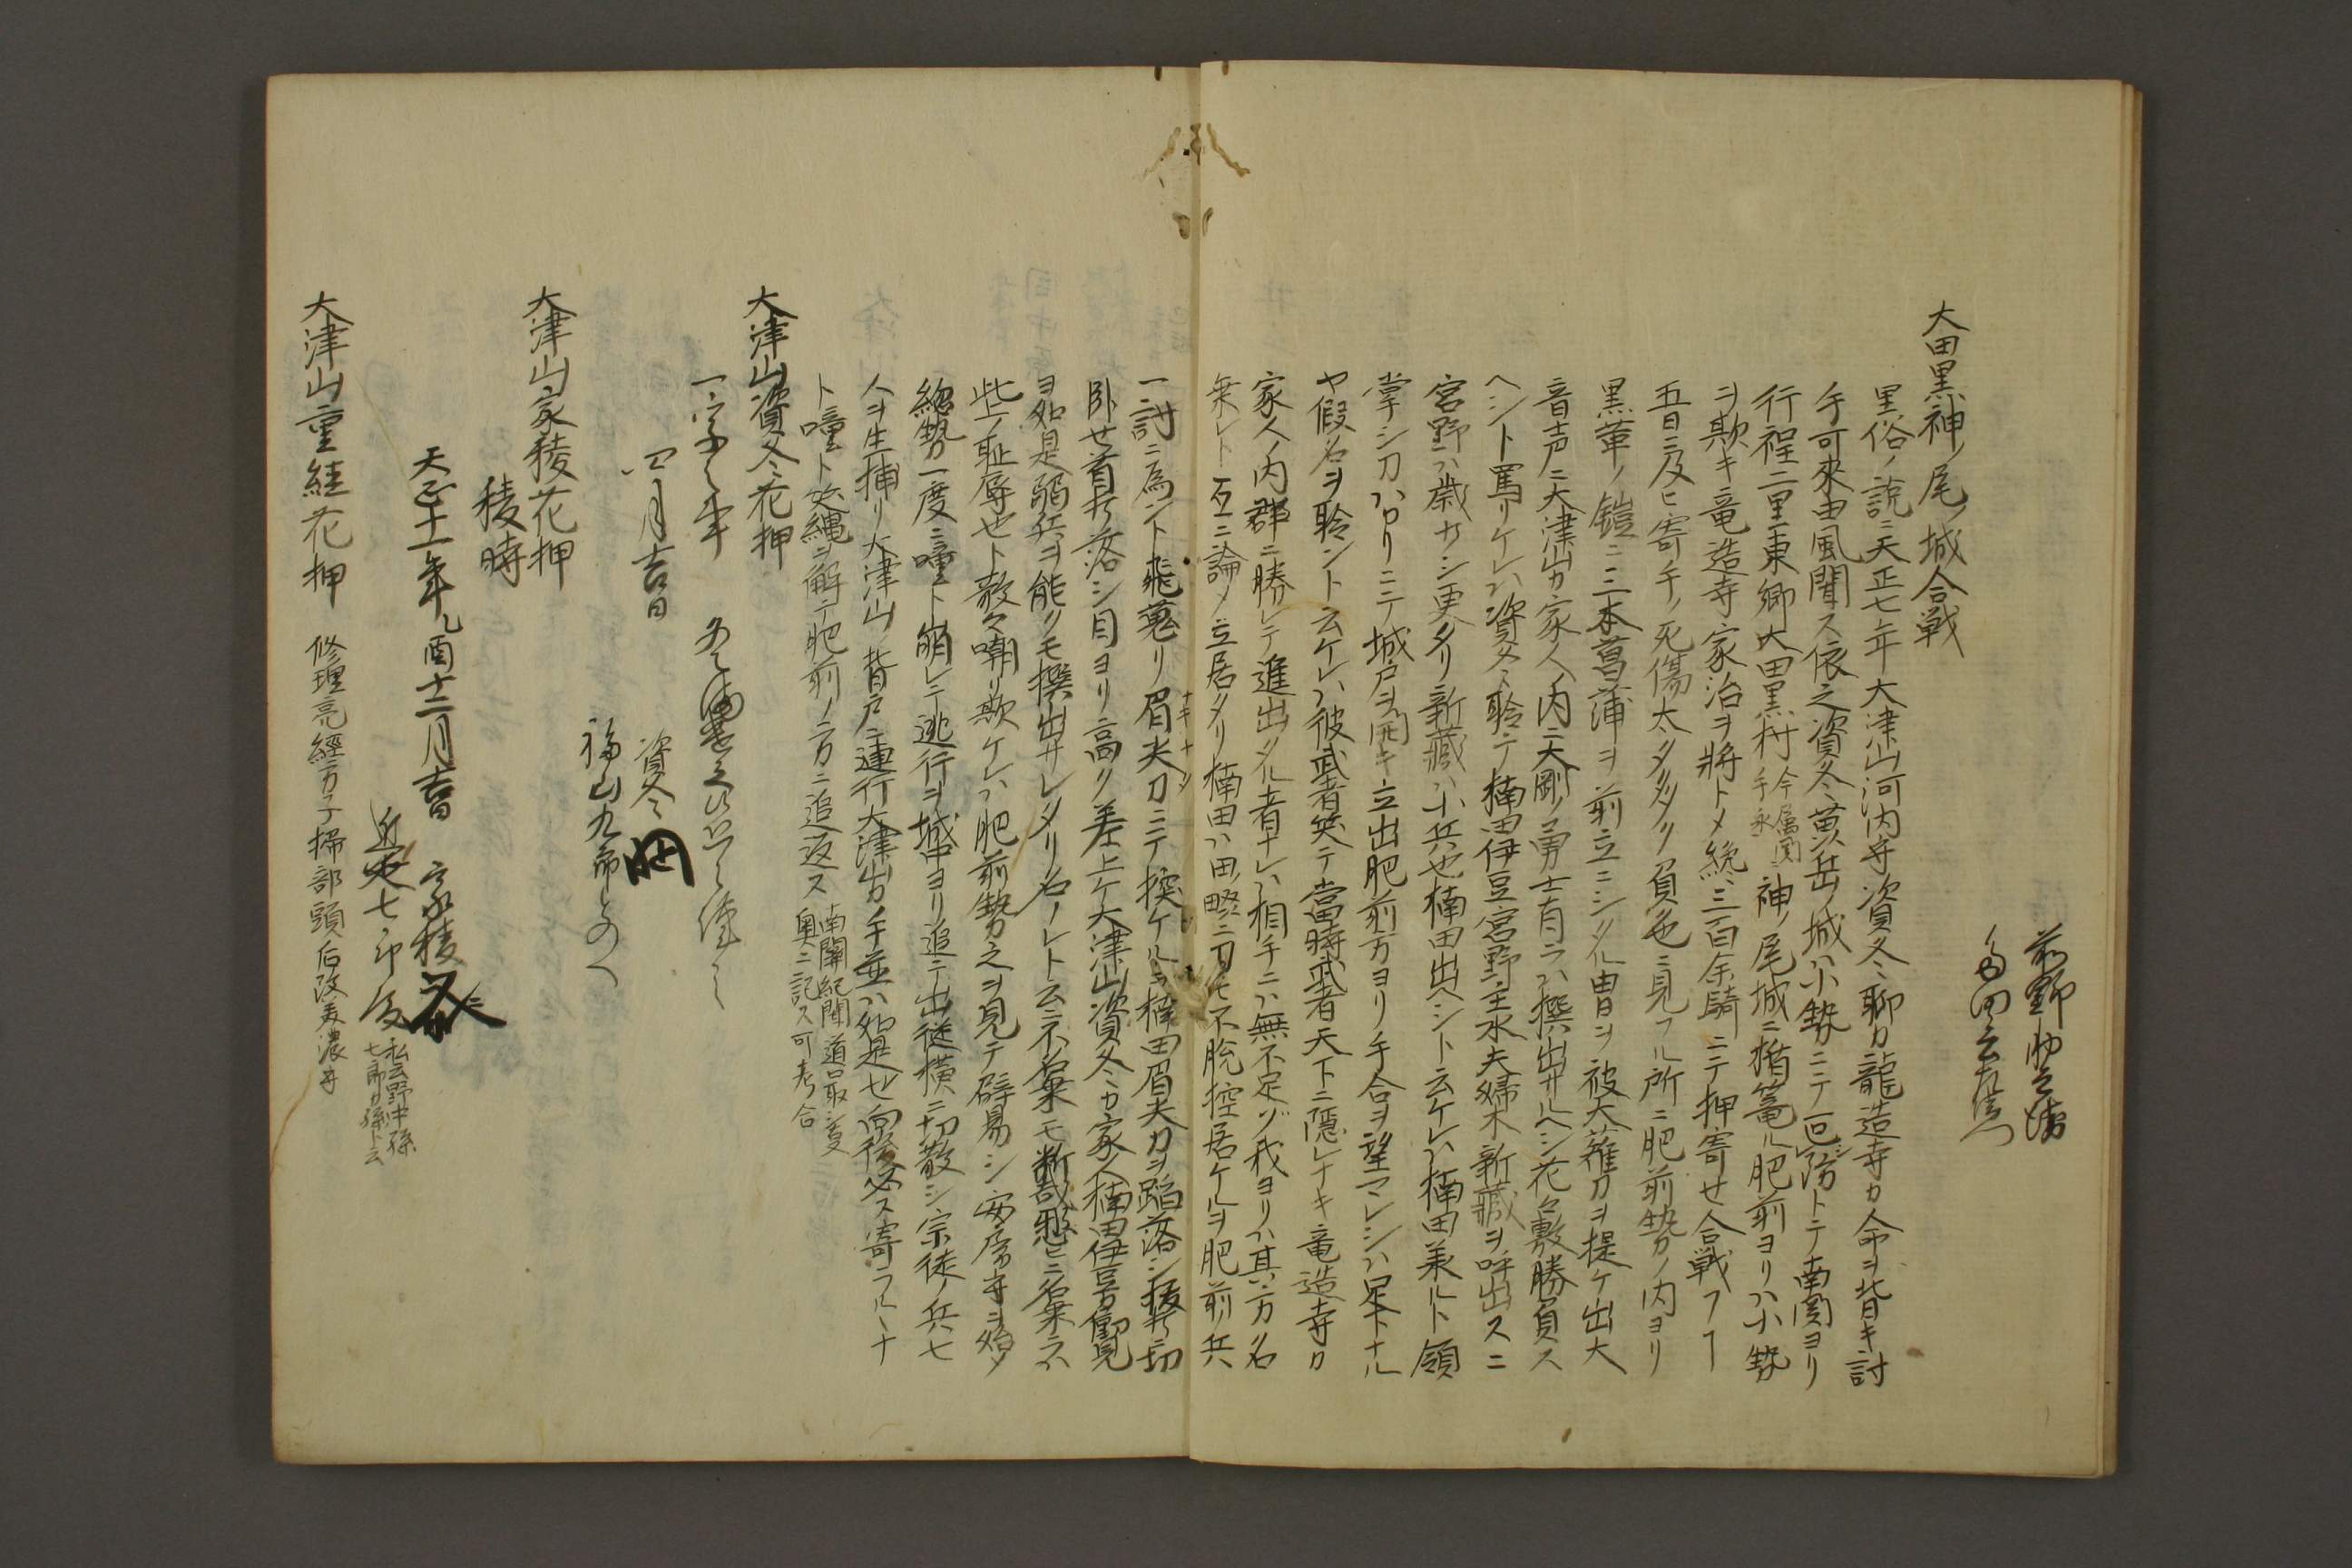 前野助左衛
多田三左衛门
大田黒神ノ尾ノ城合戦
里俗ノ説ニ天正七年大津山河内守資冬聊カ龍造寺カ命ヲ背キ討
手可來由風聞ス依之資冬黄岳ノ城ハ小勢ニテ防トテ南関ヨリ
行程二里東郷大田黒村今属南関手永神ノ尾城ニ楯篭ル肥前ヨリハ小勢
ヲ欺キ竜造寺家治ヲ將トメ纔三百余騎ニテ押寄セ合戦フヿ
五日ニ及ヒ寄手ノ死傷太タ多ク負色ニ見フル所ニ肥前勢ノ内ヨリ
黒革ノ鎧ニ三本菖蒲ヲ前立ニシタル冑ヲ被大薙刀ヲ提ケ出大
音声ニ大津山カ家人ノ内ニ大剛ノ勇士有ラハ撰出サルヘシ花々敷勝負ス
ヘシト罵リケレハ資冬聆テ楠田伊豆宮野主水夫婦木新藏ヲ呼出スニ
宮野ハ歳サシ更タリ新藏ハ小兵也楠田出ヘシト云ケレハ楠田兼ルト領
掌シ刀ハカリニテ城戸ヲ開キ立出肥前方ヨリ手合ヲ望マレシハ足下ナル
ヤ假名ヲ聆ント云ケレハ彼武者笑テ當時武者天下ニ隠レナキ竜造寺カ
家人ノ内群ニ勝レテ進出タル者ナレハ相手ニハ無不足ゾ我ヨリハ其方名
乗レト互ニ論メ立居タリ楠田ハ田畔ニ刀モ不脱控居ケルヲ肥前ノ兵
一討ニ為ント飛蒐リ眉尖刀ナギナタニテ擦ケルヲ楠田眉尖刀ヲ蹈落シ抜打ニ切
卧せ首打落シ目ヨリ高ク差上ケ大津山資冬カ家人楠田伊豆働見
ヨ如是弱兵ヲ能クモ撰出サレタリ名ノレト云ニ不名乗モ断哉憖ヒニ名乗ラハ
此上ノ耻辱也ト散々嘲リ欺ケレハ肥前勢之ヲ見テ辟易シ安房守ヲ始メ
総勢一度ニ噇ト崩レテ逃行ヲ城中ヨリ追テ出従横ニ切散シ宗徒ノ兵七
人ヲ生捕リ大津山ノ背戸ニ連行大津山カ手並ハ如是セ向後必ス寄ラルヽナ
ト噇ト笑縄ヲ解テ肥前ノ方ニ追返ス南関紀聞道取ニ奥ニ記ス可考合
大津山資冬花押
一字之事
四月吉日
資冬
福山九郎とのへ
大津山家稜花押
稜時
天正十一年九酉十二月吉日　家稜
七郎殿私云野中孫七郎カ孫ト云
大津山重経花押　修理亮經方子掃部頭后改美濃守